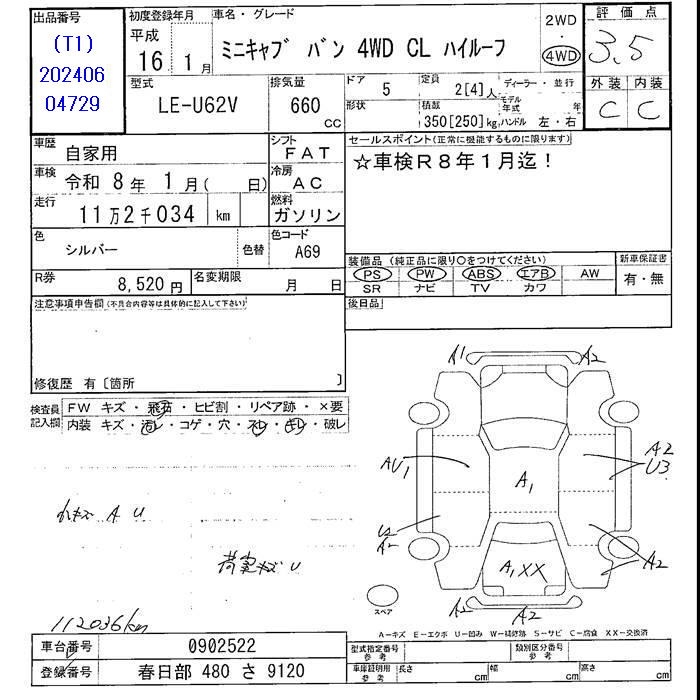 出品番号
(T1)
202406
04729
初度登録年月
平成
16 年 1 月
車名・グレード
ミニキャブ バン 4WD CL ハイルーフ
2WD
・
4WD
評価点
3.5
外装 内装
C C
型式
LE-U62V
排気量
660
cc
ドア
5
形状
定員
2[4]人
積載
350[250]kg
ディーラー・並行
モデル年式 年
ハンドル 左・右
車歴
自家用
シフト
FAT
車検
令和 8年 1月( 日)
冷房
AC
走行
11万2千034 km
燃料
ガソリン
色
シルバー
色替
色コード
A69
R券
8,520円
名変期限
月 日
セールスポイント(正常に機能するものに限ります)
☆車検R8年1月迄!
装備品 (純正品に限り〇をつけてください)
PS PW ABS エアB AW
SR ナビ TV カワ
新車保証書
有・無
後日品
注意事項申告欄(不具合内容等は具体的に記入して下さい)
修復歴 有〔箇所 〕
検査員記入欄
FW キズ・飛石・ヒビ割・リペア跡・×要
内装 キズ・汚レ・コゲ・穴・スレ・キレ・破レ
A1 A2
AU1
A2
U3
A1
A2
A2
A1XX
A2 A2
スペア
キズ A U
荷室キズ U
112036km
A－キズ E－エクボ U－凹み W－補修跡 S－サビ C－腐食 XX－交換済
車台番号
0902522
登録番号
春日部 480 さ 9120
型式指定番号
参考
類別区分番号
参考
車庫証明用
参考
長さ cm
幅 cm
高さ cm